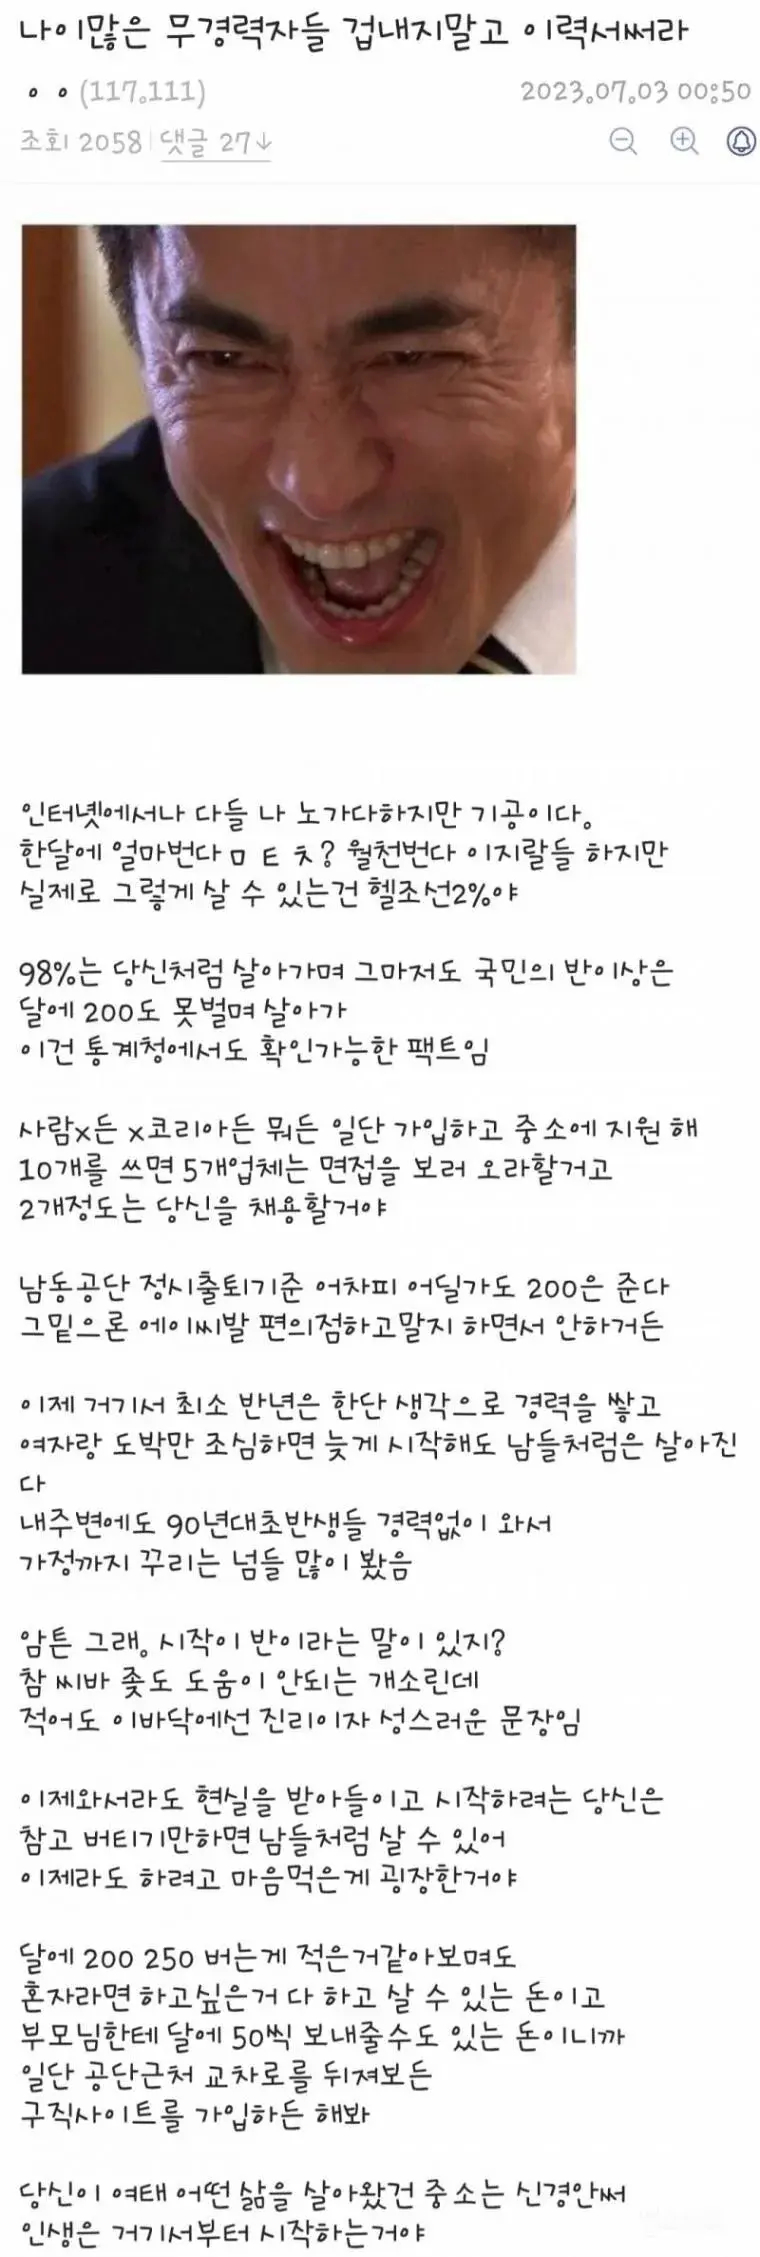 나이많은 무경력자들 겁내지말고 이력서써라
ㅇㅇ(117.111)
2023.07.03 00:50
조회 2058
댓글 27↓
인터넷에서나 다들 나 노가다하지만 기공이다.
한달에 얼마번다ㅁㅌㅊ? 월천번다 이지랄들 하지만
실제로 그렇게 살 수 있는건 헬조선2%야
98%는 당신처럼 살아가며 그마저도 국민의 반이상은
달에 200도 못벌며 살아가
이건 통계청에서도 확인가능한 팩트임
사람x든 x코리아든 뭐든 일단 가입하고 중소에 지원 해
10개를 쓰면 5개업체는 면접을 보러 오라할거고
2개정도는 당신을 채용할거야
남동공단 정시출퇴기준 어차피 어딜가도 200은 준다
그밑으론 에이씨발 편의점하고말지 하면서 안하거든
이제 거기서 최소 반년은 한단 생각으로 경력을 쌓고
여자랑 도박만 조심하면 늦게 시작해도 남들처럼은 살아진
다
내주변에도 90년대초반생들 경력없이 와서
가정까지 꾸리는 넘들 많이 봤음
암튼 그래. 시작이 반이라는 말이 있지?
참 씨바 좆도 도움이 안되는 개소린데
적어도 이바닥에선 진리이자 성스러운 문장임
이제와서라도 현실을 받아들이고 시작하려는 당신은
참고 버티기만하면 남들처럼 살 수 있어
이제라도 하려고 마음먹은게 굉장한거야
달에 200 250 버는게 적은거같아보며도
혼자라면 하고싶은거 다 하고 살 수 있는 돈이고
부모님한테 달에 50씩 보내줄수도 있는 돈이니까
일단 공단근처 교차로를 뒤져보든
구직사이트를 가입하든 해봐
당신이 여태 어떤 삶을 살아왔건 중소는 신경안써
인생은 거기서부터 시작하는거야